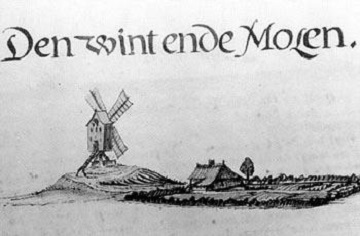 Den wint ende Molen.